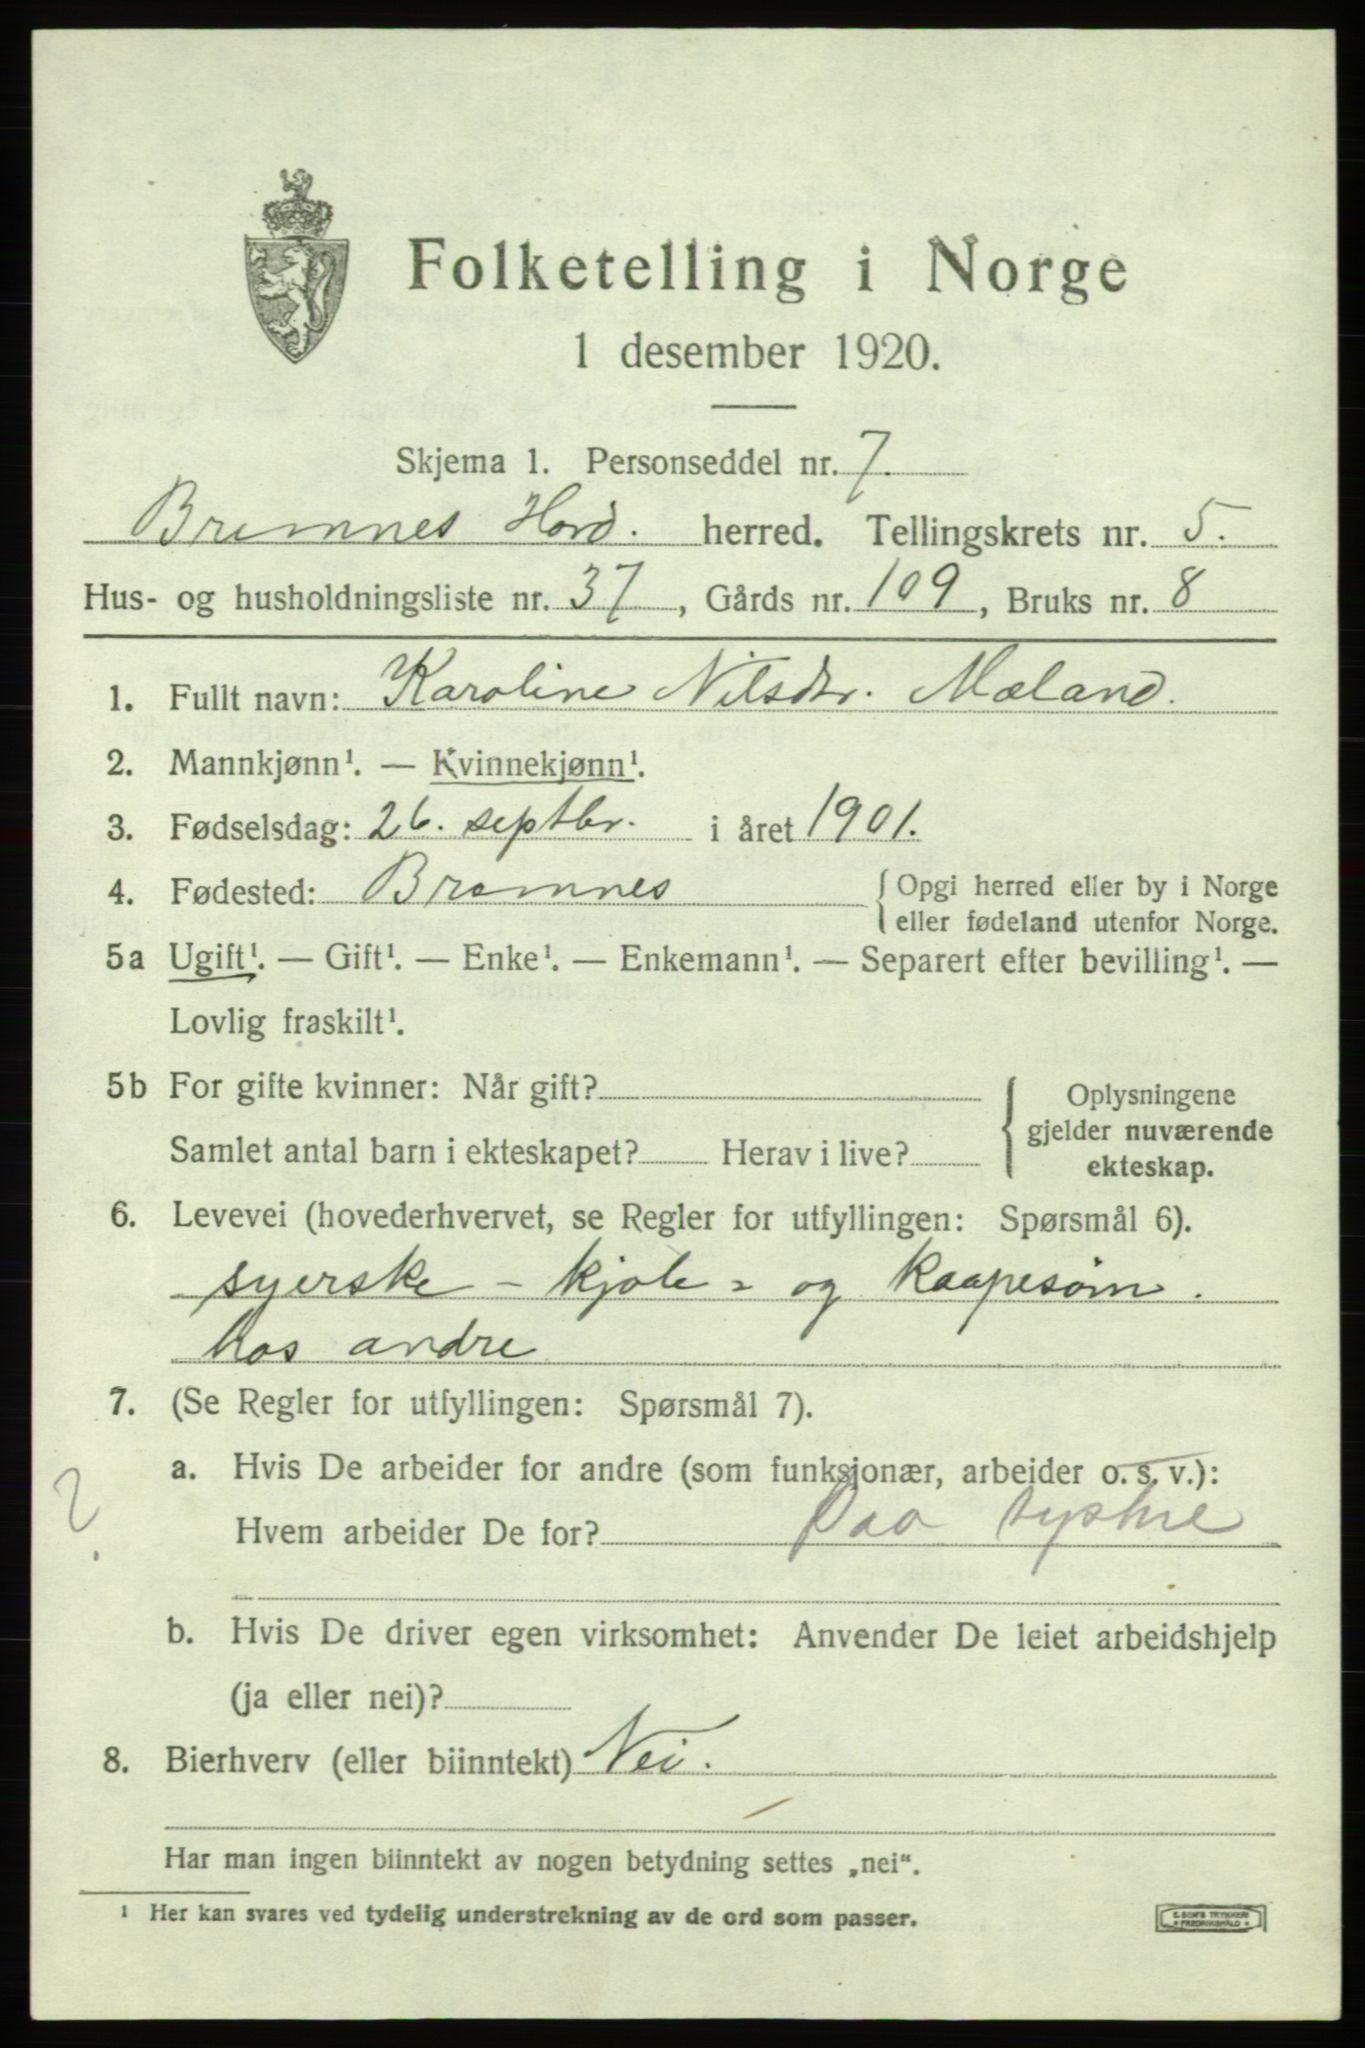 Folketelling i Norge
1 desember 1920.
Skjema 1. Personseddel nr. 7.
Bremnes Hord. herred. Tellingskrets nr. 5.
Hus- og husholdningsliste nr. 37, Gårds nr. 109, Bruks nr. 8
1. Fullt navn: Karoline Nilsdtr. Mæland.
2. Mannkjønn¹. — Kvinnekjønn¹.
3. Fødselsdag: 26. septbr. i året 1901.
4. Fødested: Bremnes { Opgi herred eller by i Norge
eller fødeland utenfor Norge.
5a Ugift¹. — Gift¹. — Enke¹. — Enkemann¹. — Separert efter bevilling¹. —
Lovlig fraskilt¹.
5b For gifte kvinner: Når gift?
Samlet antal barn i ekteskapet? Herav i live?
{ Oplysningene
gjelder nuværende
ekteskap.
6. Levevei (hovederhvervet, se Regler for utfyllingen: Spørsmål 6).
syerske - kjole- og kaapesøm.
hos andre
7. (Se Regler for utfyllingen: Spørsmål 7).
a. Hvis De arbeider for andre (som funksjonær, arbeider o. s. v.):
?
Hvem arbeider De for? Paa systue
b. Hvis De driver egen virksomhet: Anvender De leiet arbeidshjelp
(ja eller nei)?
8. Bierhverv (eller biinntekt) Nei.
Har man ingen biinntekt av nogen betydning settes „nei“.
¹ Her kan svares ved tydelig understrekning av de ord som passer.